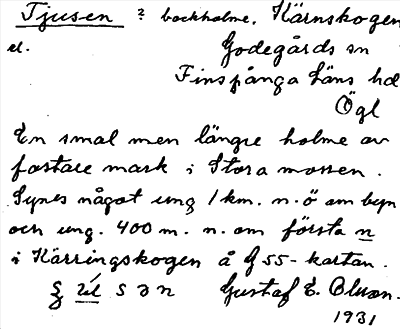 Tjusen ? backholme. Kärnskogen
el. Godegårds sn
Finspånga läns hd
Ögl
En smal men längre holme av
fastare mark i Stora mossen.
Synes något ung 1 km. n. ö om byn
och ung. 400 m. n. om första n
i Kärringskogen å G 55-kartan.
Gustaf E. Olsson.
1931